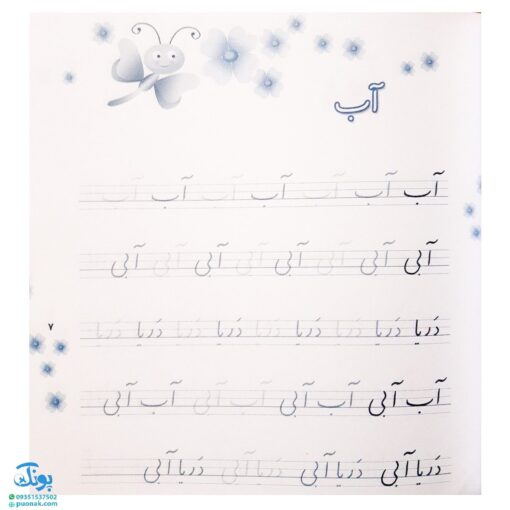 آب
آب آب آب آب آب آب آب
آبی آبی آبی آبی آبی آبی آبی
دَریا دَریا دَریا دَریا دَریا دَریا دَریا دَریا
آب آبی آب آبی آب آبی آب آبی
دَریا آبی دَریا آبی دَریا آبی دَریا آبی
۷
پونک
09351537502
puonak.com